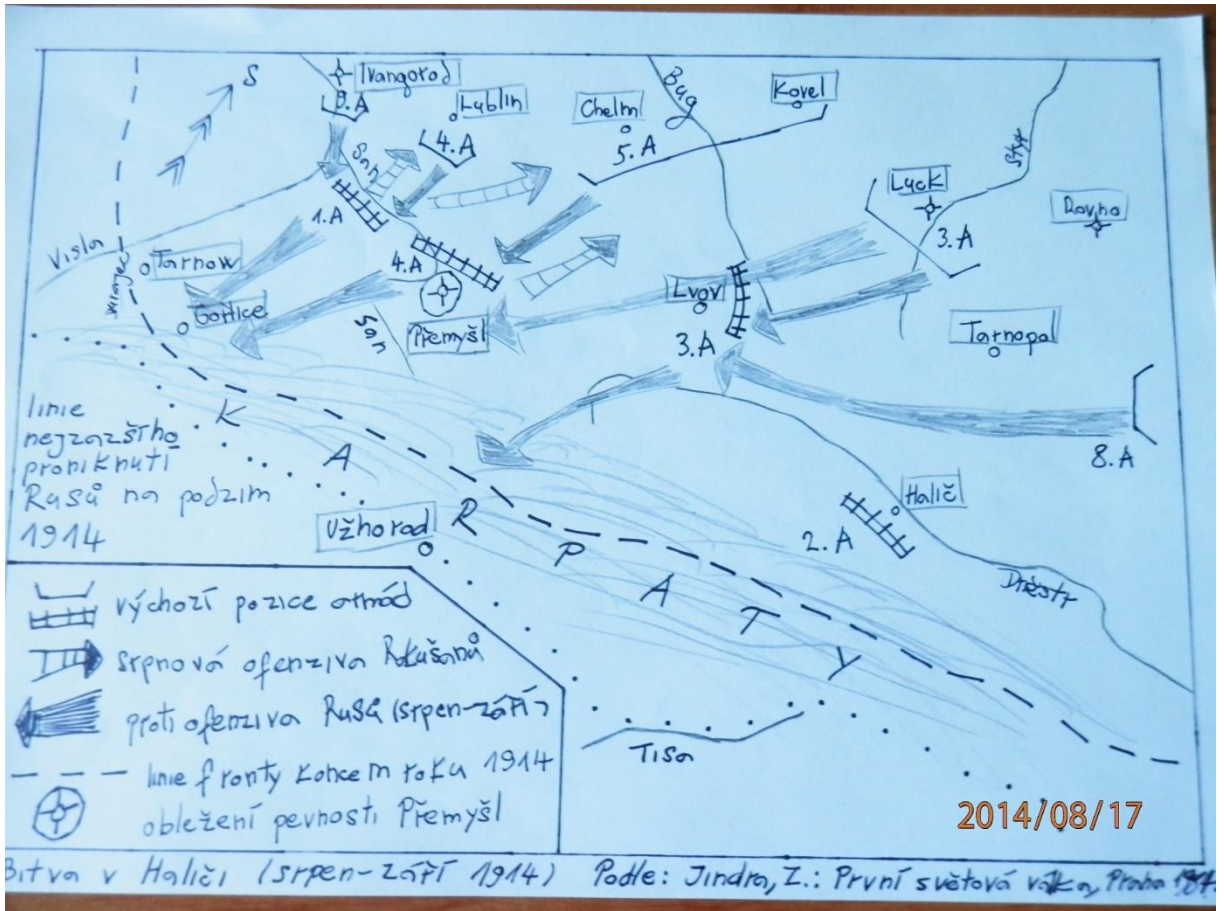 S
Ivangorod
Lublin
Chelm
Bug
Kovel
4. A
5. A
San
Styr
Luck
Rovno
3. A
1. A
Visla
Tarnow
4. A
Lvov
Gorlice
San
Přemyšl
3. A
Tarnopal
8. A
linie
nejzazšího
proniknutí
Rusů na podzim
1914
KARPATY
Užhorod
Halič
2. A
Dněstr
výchozí pozice armád
srpnová ofenziva Rakušanů
proti ofenziva Rusů (srpen-září)
linie fronty koncem roku 1914
obležení pevnosti Přemyšl
Tisa
2014/08/17
Bitva v Haliči (srpen-září 1914) Podle: Jindra, Z.: První světová válka, Praha